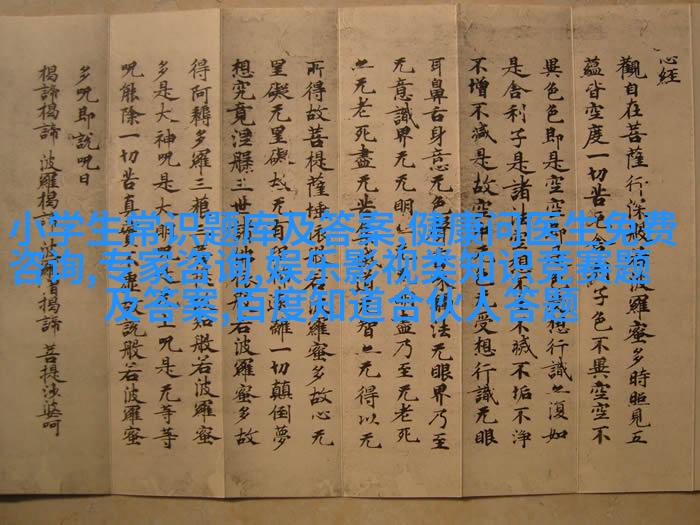 心经
觀自在菩薩行深般波羅蜜多時照見五
蘊皆空度一切苦厄子色不異空空不
異色色即是空空即想行識亦復如
是舍利子是諸法不滅不垢不淨
不增不減是故空中无受想行識无眼
耳鼻舌身意无色法无眼界乃至
无意識界无无明盡乃至无老死
亦无老死盡无苦集智亦无得以无
所得故菩提薩埵羅蜜多故心无
罣礙无罣礙故无有離一切顛倒夢
想究竟涅槃三世若波羅蜜多故
得阿耨多羅三藐三知般若波羅蜜
多是大神呪是大明上呪是无等等
呪能除一切苦真實不虛說般若波羅蜜
多呪即說呪曰
揭諦揭諦 波羅揭諦 波羅僧揭諦 菩提婆呵
小学生常识题库及答案,健康问医生免费
咨询,专家咨询,娱乐影视类知识竞赛题
及答案,百度知道合伙人答题